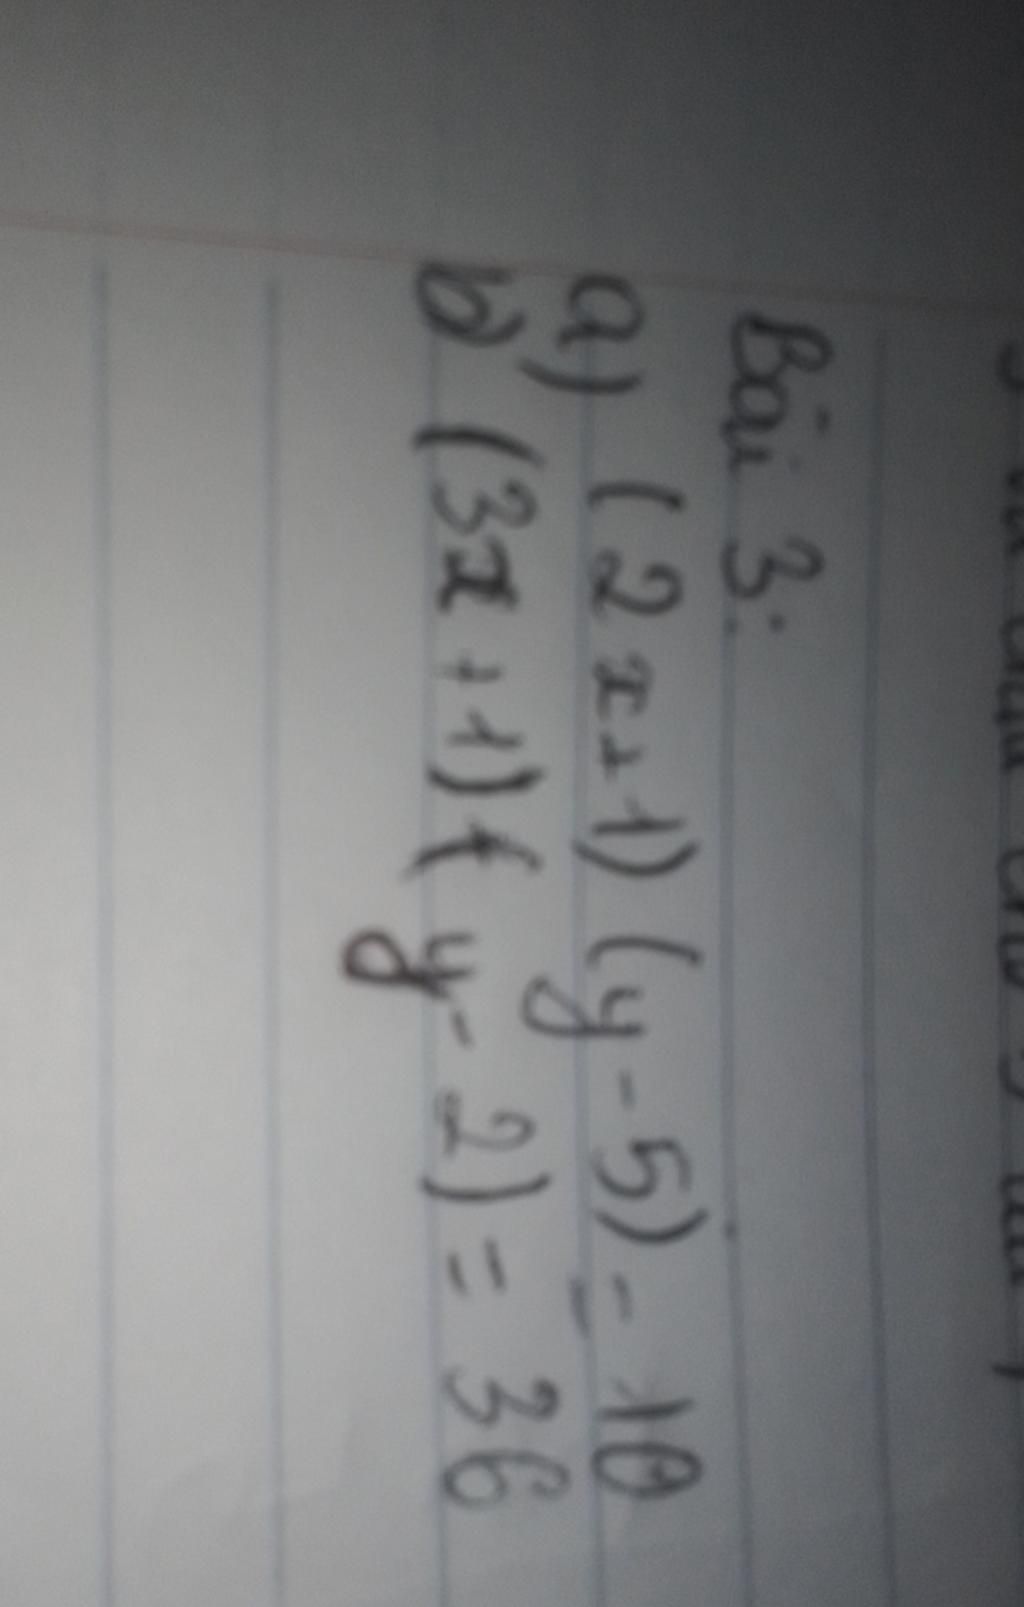 Bài 3:
a) (2x+1)(y-5) = 10
b) (3x+1)(y-2) = 36